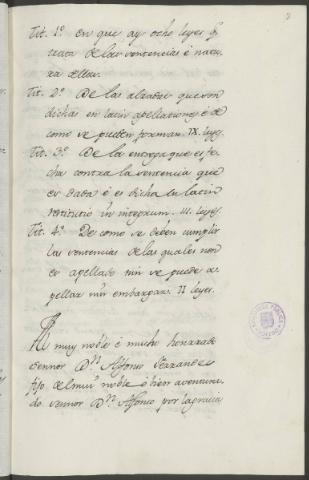 Tit. 1º. en que ay ocho leyes q̃
trata de las sentencias è natu-
ra dellas.
Tit. 2º. De las alzadas que son
dichas en latin apellationes è de
como se pueden formar. IX. leyes.
Tit. 3º. De la entrega que es fe-
cha contra la sentencia que
es dada è es dicha en latin
restitutio in integrum. III. leyes.
Tit. 4º. De como se deben cumplir
las sentencias de las quales non
es apellado nin se puede a-
pellar nin embargar. II leyes.
Al muy noble è mucho honrrado
Sennor Dⁿ. Alfonso Ferrandes
fijo del mui noble è bien aventura-
do sennor Dⁿ. Alfonso por la gracia